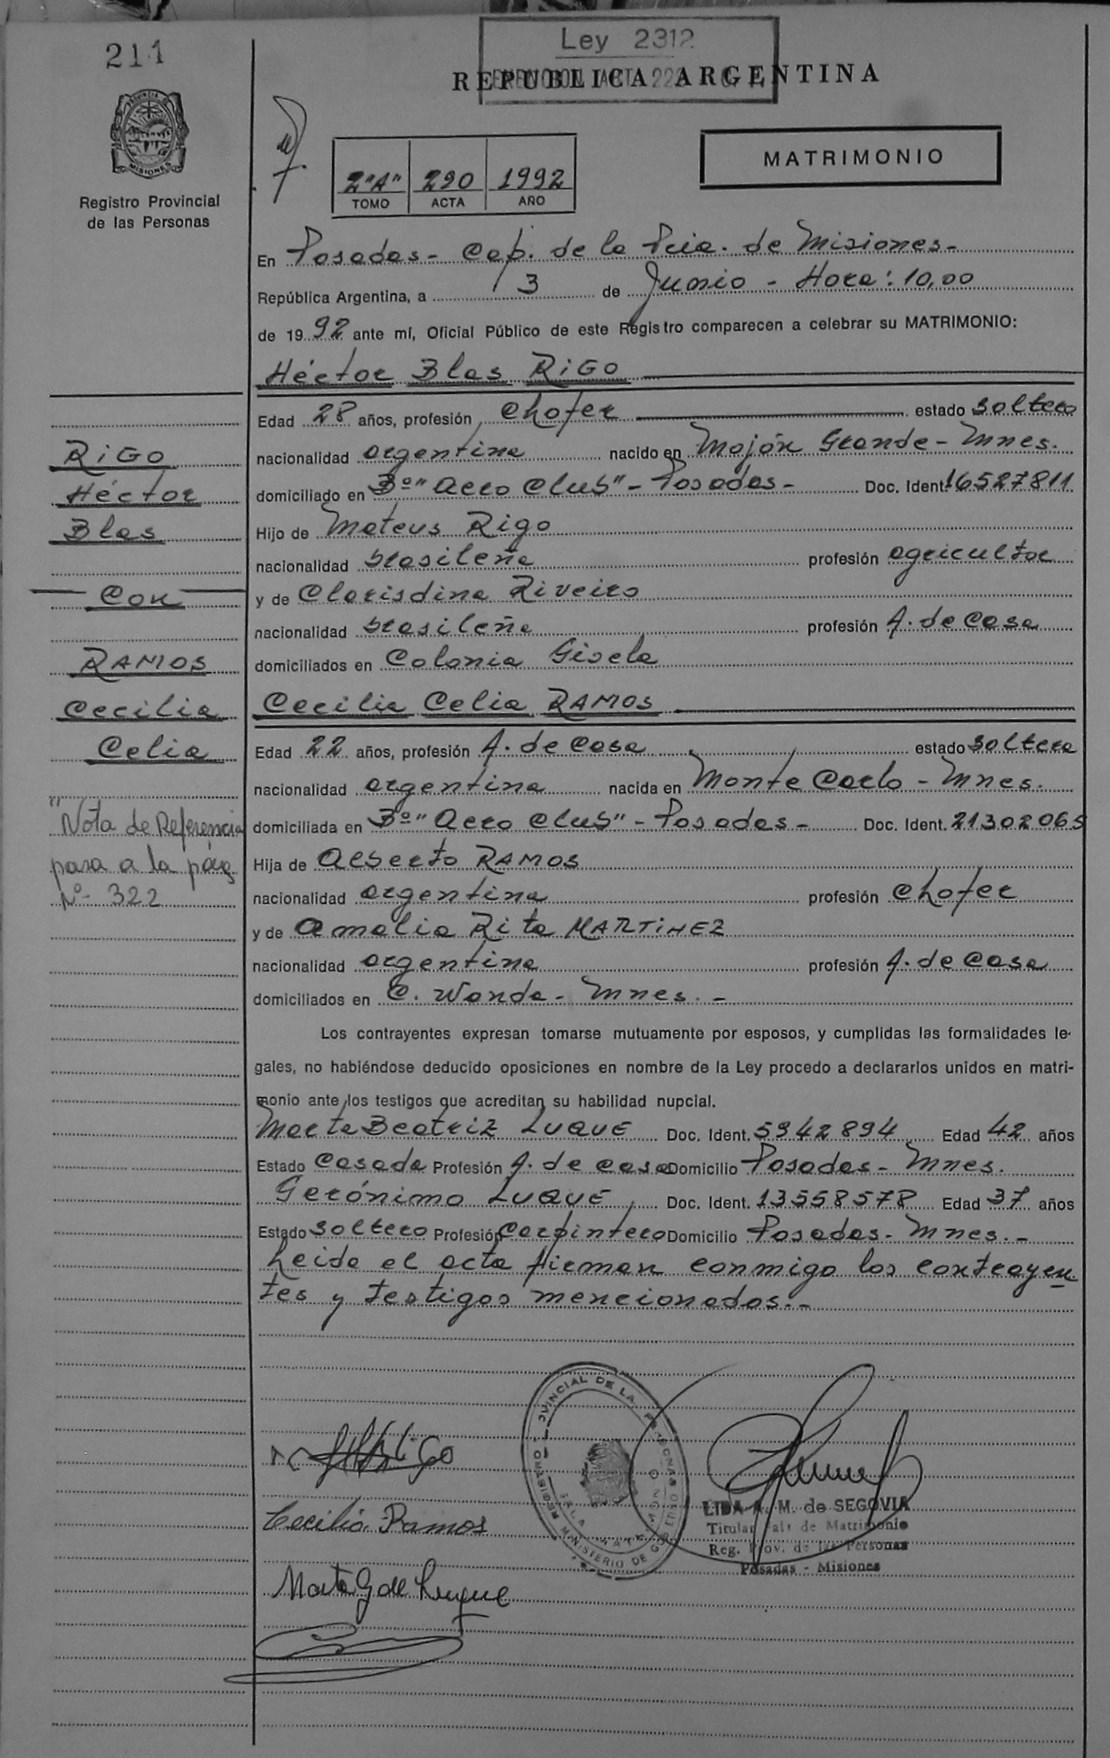 211
Ley 2312
REPUBLICA ARGENTINA
MATRIMONIO
Registro Provincial
de las Personas
2"A" 290 1992
TOMO ACTA AÑO
En Posadas - Cap. de la Pcia. de Misiones -
República Argentina, a 3 de Junio - Hora: 10,00
de 1992 ante mí, Oficial Público de este Registro comparecen a celebrar su MATRIMONIO:
Héctor Blas RIGO
Edad 28 años, profesión chofer estado soltero
nacionalidad argentina nacido en Mojón Grande - Mnes.
domiciliado en Bº "Aero Club" - Posadas - Doc. Ident. 16527811
Hijo de Mateus Rigo
nacionalidad brasileña profesión agricultor
y de Clarisdina Riveiro
nacionalidad brasileña profesión A. de Casa
domiciliados en Colonia Gisela
Cecilia Celia RAMOS
Edad 22 años, profesión A. de Casa estado soltera
nacionalidad argentina nacida en Monte Carlo - Mnes.
domiciliada en Bº "Aero Club" - Posadas - Doc. Ident. 21302065
Hija de Alberto RAMOS
nacionalidad argentina profesión chofer
y de Amalia Rita MARTINEZ
nacionalidad argentina profesión A. de Casa
domiciliados en C. Wanda - Mnes. -
Los contrayentes expresan tomarse mutuamente por esposos, y cumplidas las formalidades le-
gales, no habiéndose deducido oposiciones en nombre de la Ley procedo a declararlos unidos en matri-
monio ante los testigos que acreditan su habilidad nupcial.
Marta Beatriz LUQUE Doc. Ident. 5942894 Edad 42 años
Estado Casada Profesión A. de casa Domicilio Posadas - Mnes.
Gerónimo LUQUE Doc. Ident. 13558578 Edad 37 años
Estado soltero Profesión Carpintero Domicilio Posadas - Mnes. -
Leida el acta firman conmigo los contrayen
tes y testigos mencionados. -
RIGO
Héctor
Blas
Con
RAMOS
Cecilia
Celia
"Nota de Referencia
pasa a la pág
Nº 322
Cecilia Ramos
Marta G de Luque
LIDA A. M. de SEGOVIA
Titular de Matrimonio
Reg. Prov. de las Personas
Posadas - Misiones